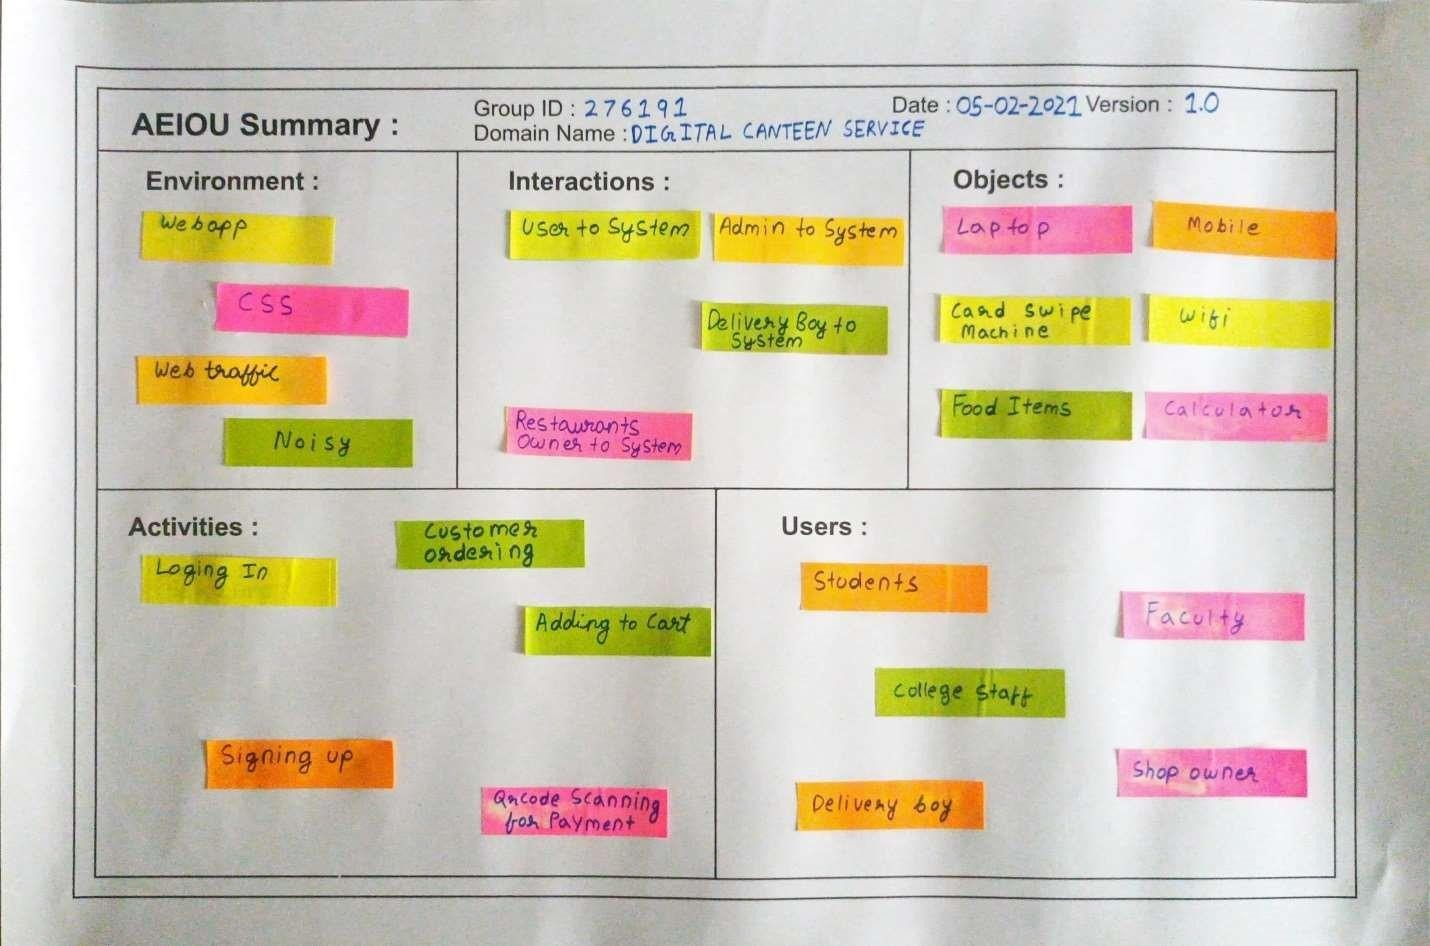 AEIOU Summary :
Group ID : 276191
Date : 05-02-2021 Version : 1.0
Domain Name : DIGITAL CANTEEN SERVICE
Environment :
Webapp
CSS
Web traffic
Noisy
Interactions :
User to System
Admin to System
Delivery Boy to
System
Restaurants
Owner to System
Objects :
Laptop
Mobile
Card swipe
Machine
Wifi
Food Items
Calculator
Activities :
Customer
ordering
Loging In
Adding to Cart
Signing up
Qrcode Scanning
for Payment
Users :
Students
Faculty
College Staff
Shop owner
Delivery boy